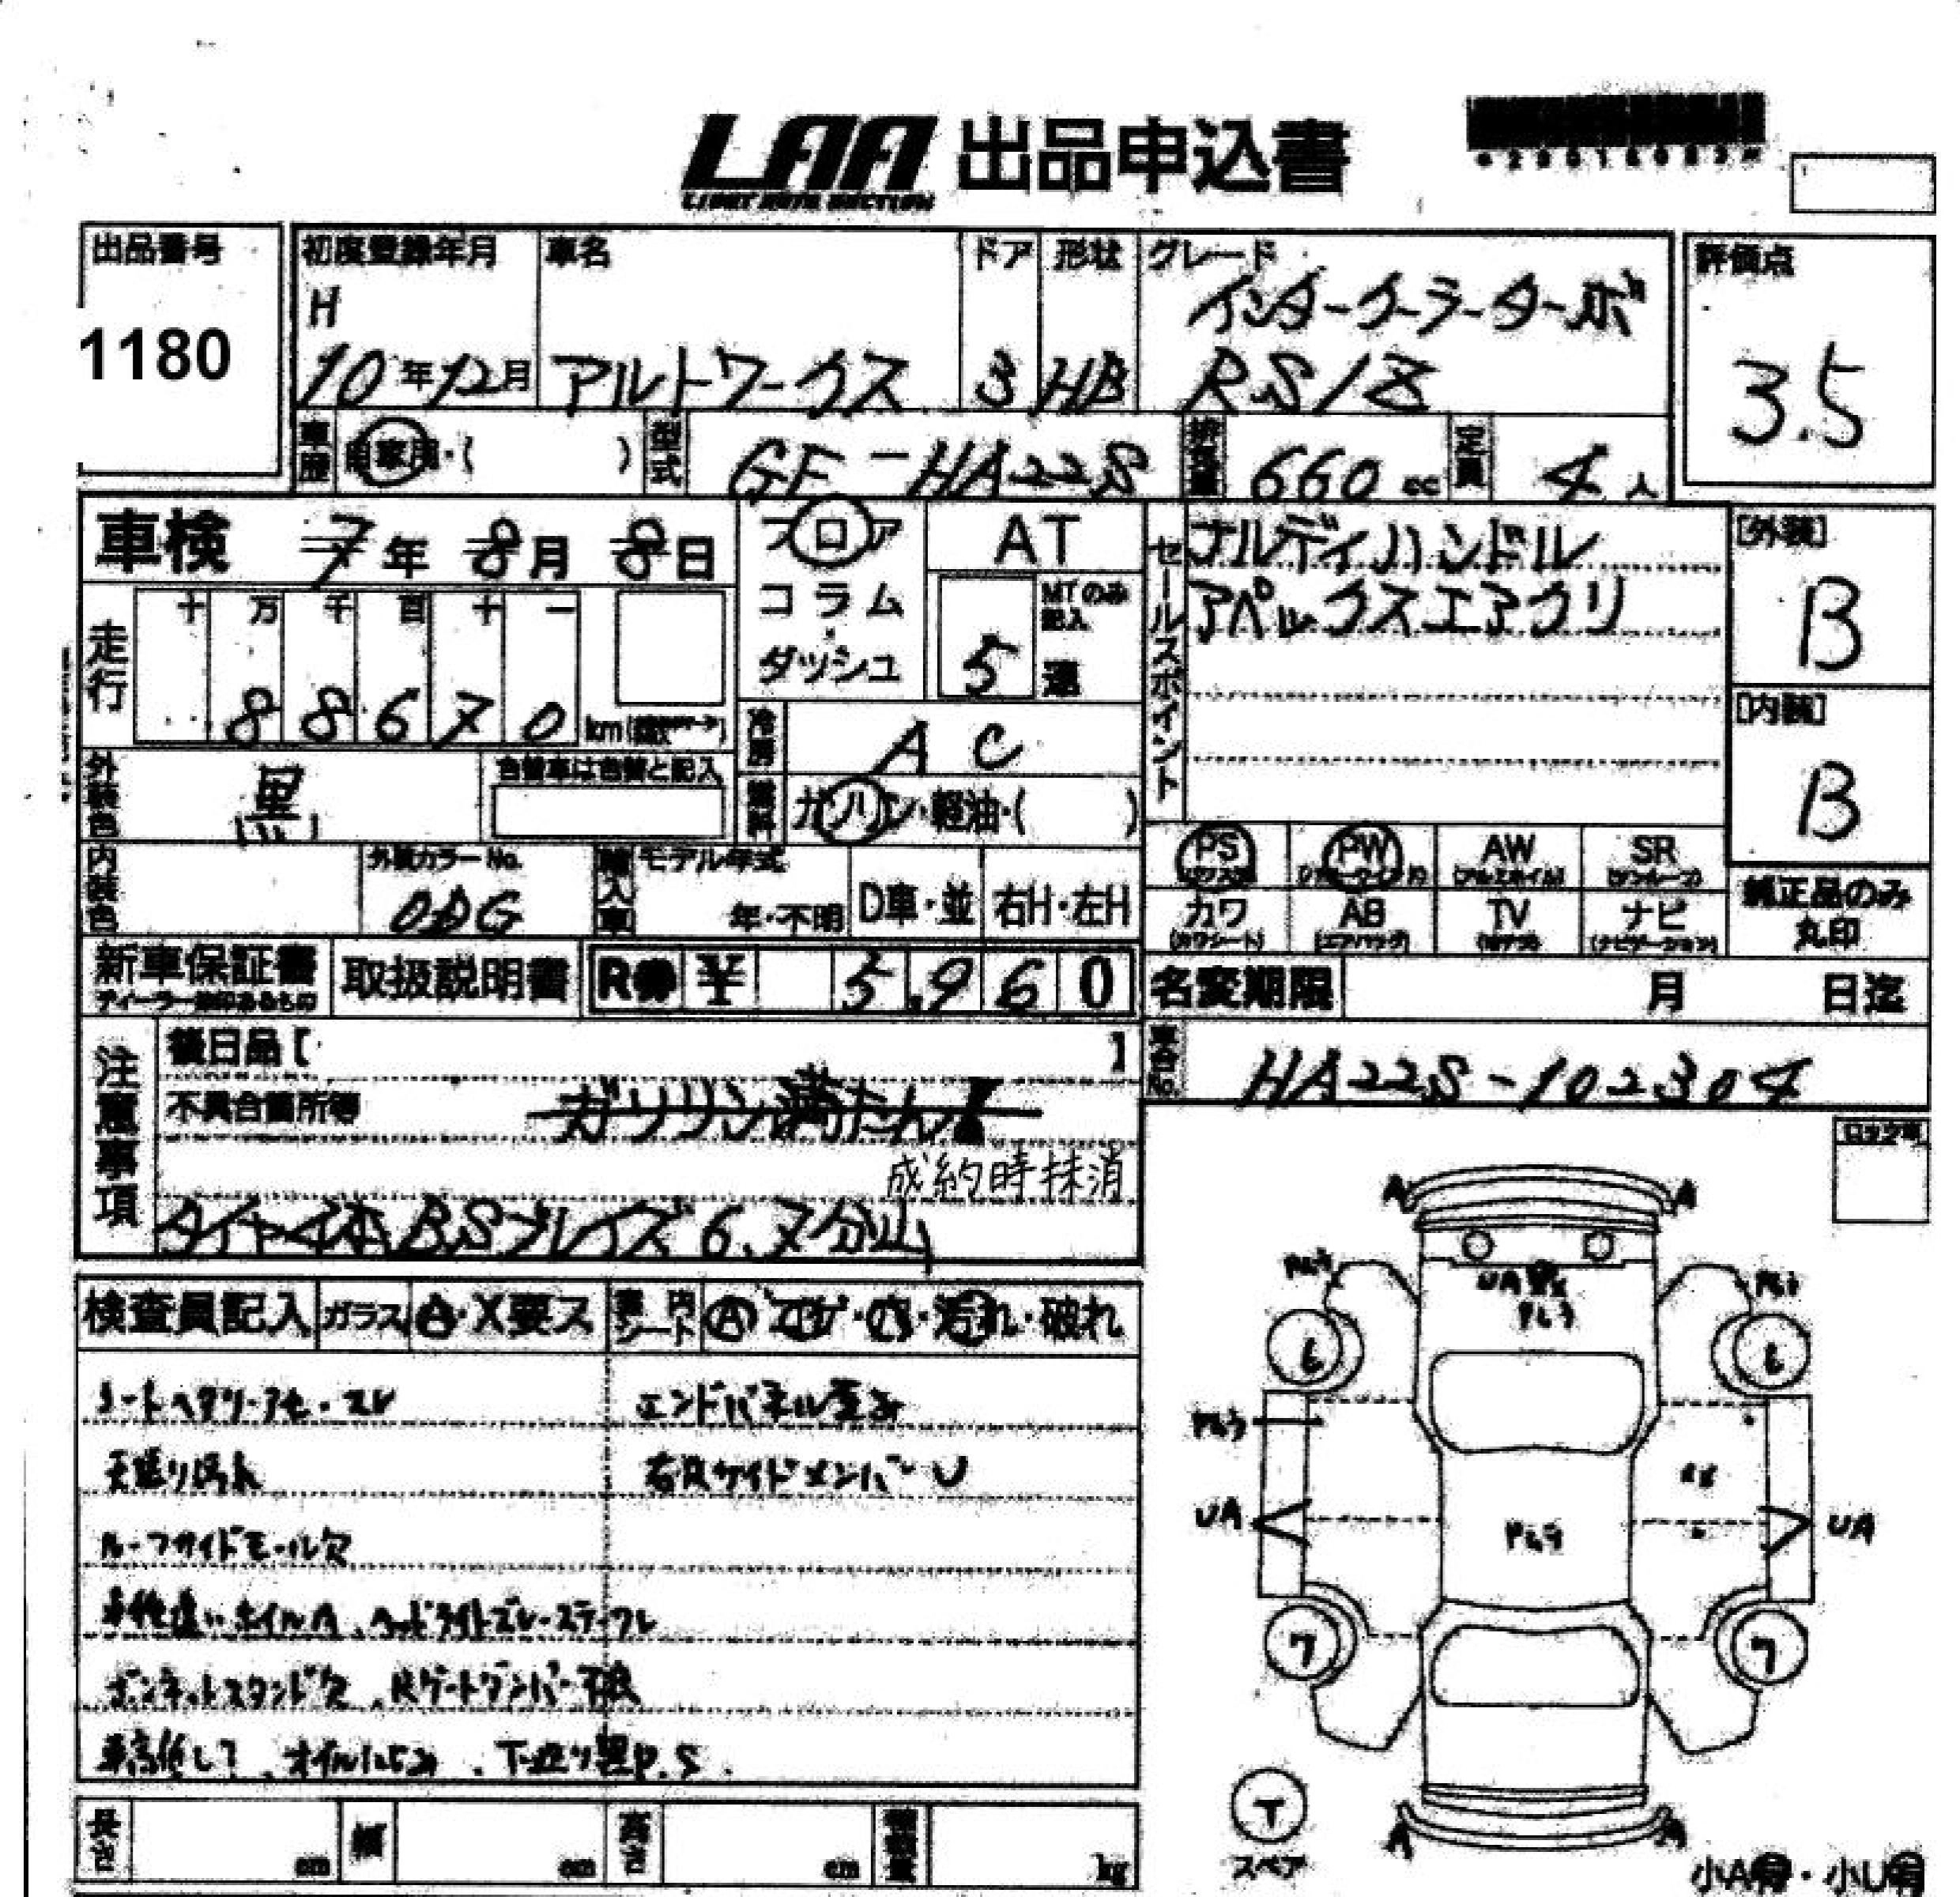 LAA 出品申込書
LIGHT AUTO AUCTION
出品番号
1180
初度登録年月
H
10年12月
車名
アルトワークス
ドア
3
形状
HB
グレード
インタークーラーターボ
RS/Z
評価点
3.5
車歴
自家用・( )
型式
GF-HA22S
排気量
660 cc
定員
4人
車検 7年 8月 8日
走行
十 万 千 百 十 一
8 8 6 7 0 km
フロア
コラム
ダッシュ
AT
MTのみ
記入
5速
冷房
AC
燃料
ガソリン・軽油・( )
セールスポイント
ナルディハンドル
アペックスエアクリ
[外装]
B
[内装]
B
外装色
黒
色替車は色替と記入
内装色
外装カラーNo.
0DG
輸入車
モデル年式
年・不明
D車・並
右H・左H
PS
PW
AW
(アルミホイル)
SR
(サンルーフ)
カワ
(カワシート)
AB
(エアバッグ)
TV
ナビ
(ナビゲーション)
純正品のみ
丸印
新車保証書
取扱説明書
R券 ¥ 5,960
名変期限 月 日迄
注意事項
後日品【 】
不具合箇所等
ガソリン満たん!
成約時抹消
タイヤ4本BSブレイズ6、7分山
車台No.
HA22S-102304
検査員記入
ガラス
A・X要ス
内
シート
コゲ・穴・汚れ・破れ
シートヘタリ・アセ・スレ
天張り汚れ
ルーフサイドモール欠
エンドパネル歪み
右Rサイドメンバー U
車種違いホイルA、ヘッドライトズレ・ステークレ
ボンネットスタンド欠、Rゲートダンパー不良
車高低し?、オイルにじみ、下廻り黒P.S.
ロック号
A
A
UA
6
6
UA
UA
7
7
T
スペア
A
A
小A有・小U有
長さ cm
幅 cm
高さ cm
積載量 kg